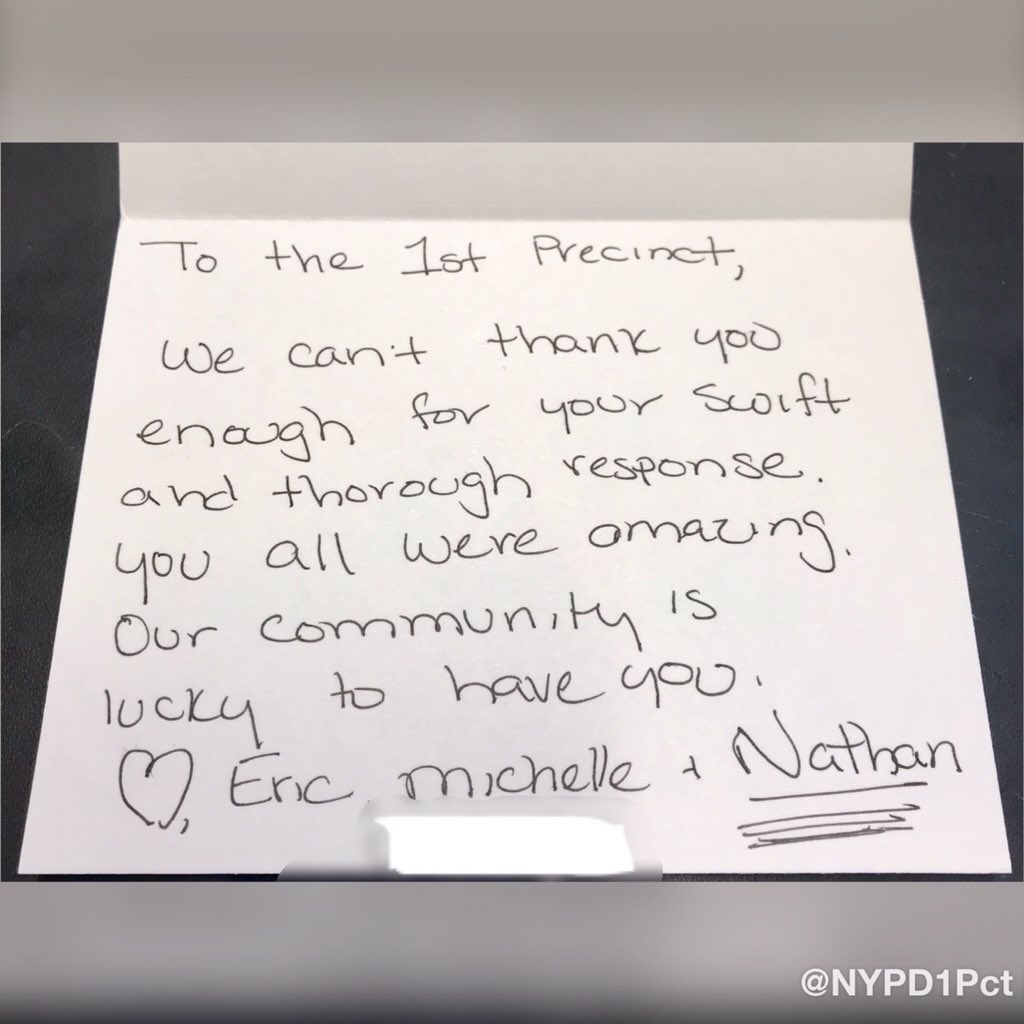 To the 1st Precinct,
We can't thank you
enough for your swift
and thorough response.
you all were amazing.
Our community is
lucky to have you.
♡, Eric, michelle + Nathan
@NYPD1Pct